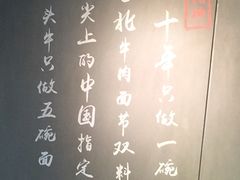 十年只做一碗
北牛肉面节双料
尖上的中国指定
头牛只做五碗面